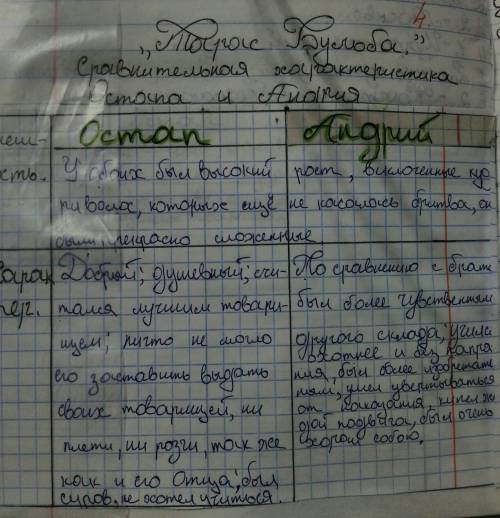 4
„Тарас Бульба."
Сравнительная характеристика
Остапа и Андрия
Остап Андрий
сть. У обоих был высокий рост,
которых ещё не касалась бритва, он
были прекрасно сложенные
Добрый; душевный; счи-
тался лучшим товари-
щем; ничто не могло
его заставить выдать
своих товарищей, ни
плети, ни розги, так же
как и его отца; был
суров. не хотел учиться.
По сравнению с брат
был более чувственным
другого склада; учился
охотнее и без напря
ния, был более изобретате
ным; умел увертываться
от наказания, кипел ж
дой подвига, был очень
хорош собою.